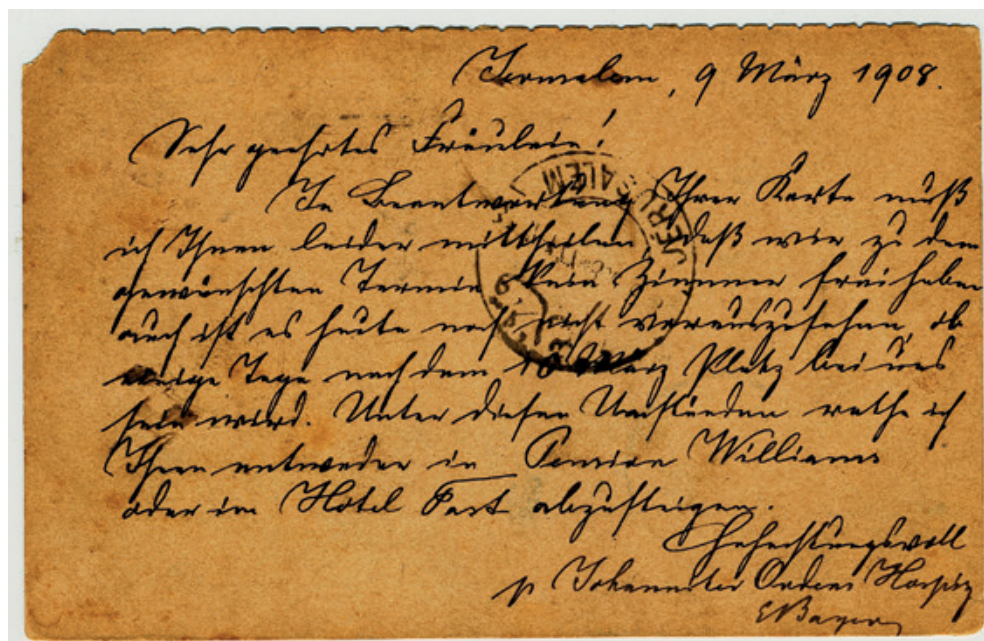 Jerusalem, 9 März 1908.
Sehr geehrtes Fräulein!
In Beantwortung Ihrer Karte muß
ich Ihnen leider mittheilen daß wir zu dem
gewünschten Termin kein Zimmer frei haben
auch ist es heute noch nicht vorauszusehen, ob
einige Tage nach dem 18 März Platz bei uns
sein wird. Unter diesen Umständen rathe ich
Ihnen entweder in Pension Williams
oder im Hotel Fast abzusteigen.
Hochachtungsvoll
p Johanniter Ordens Hospiz
EBayer
JERUSALEM